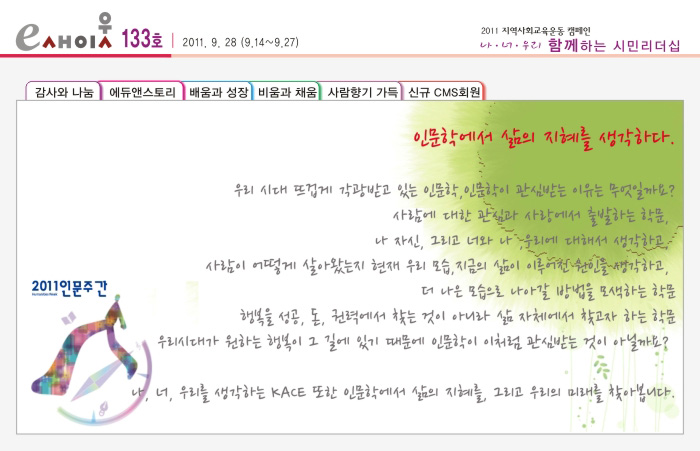 e사이오 133호 | 2011. 9. 28 (9.14~9.27)
2011 지역사회교육운동 캠페인
나·너·우리 함께하는 시민리더십
감사와 나눔 에듀앤스토리 배움과 성장 비움과 채움 사람향기 가득 신규 CMS회원
인문학에서 삶의 지혜를 생각하다.
우리 시대 뜨겁게 각광받고 있는 인문학,인문학이 관심받는 이유는 무엇일까요?
사람에 대한 관심과 사랑에서 출발하는 학문,
나 자신, 그리고 너와 나 ,우리에 대해서 생각하고,
사람이 어떻게 살아왔는지 현재 우리 모습,지금의 삶이 이루어진 원인을 생각하고,
더 나은 모습으로 나아갈 방법을 모색하는 학문
행복을 성공, 돈, 권력에서 찾는 것이 아니라 삶 자체에서 찾고자 하는 학문
우리시대가 원하는 행복이 그 길에 있기 때문에 인문학이 이처럼 관심받는 것이 아닐까요?
2011인문주간
나, 너, 우리를 생각하는 KACE 또한 인문학에서 삶의 지혜를, 그리고 우리의 미래를 찾아봅니다.